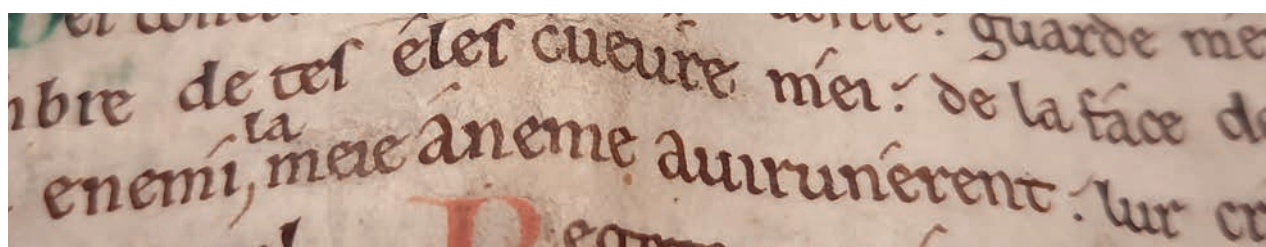 guarde me
bre de tes éles cueuire méi: de la fáce
enemi, la meie áneme auirunérent: lur